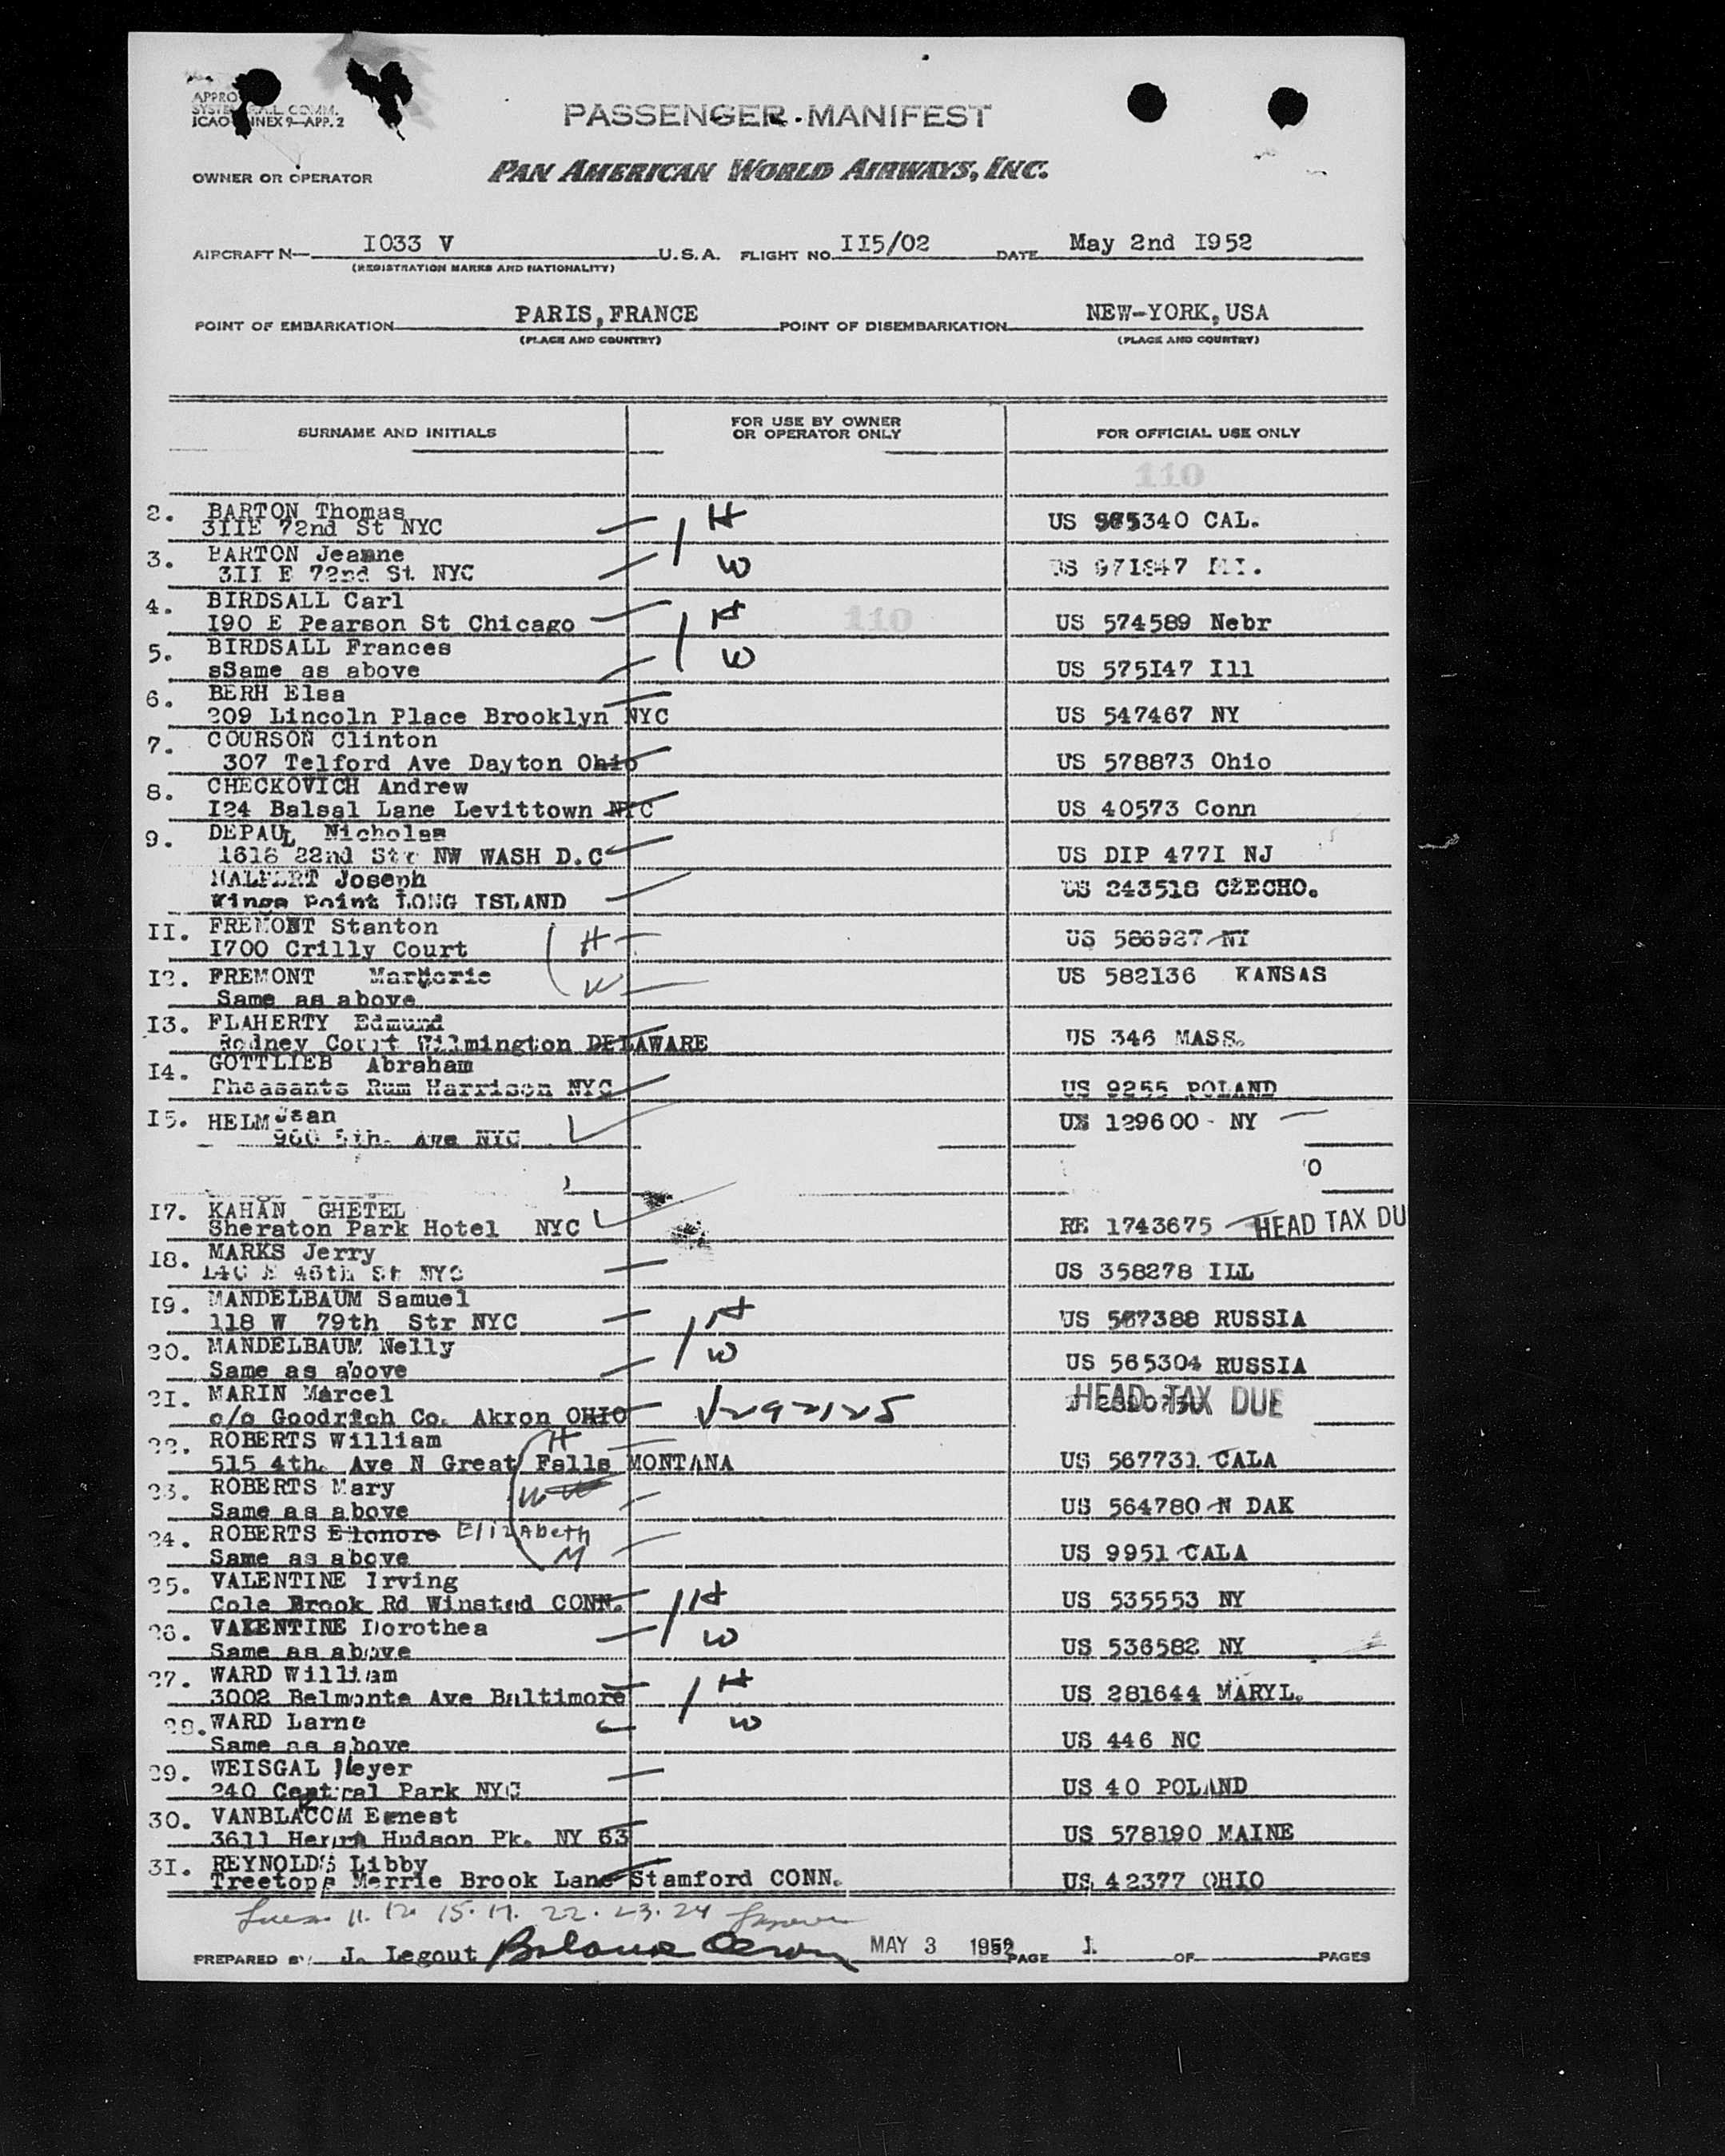 APPRO
ICAO ANNEX 9—APP. 2
PASSENGER MANIFEST
OWNER OR OPERATOR PAN AMERICAN WORLD AIRWAYS, INC.
AIRCRAFT N— I033 V U.S.A. FLIGHT NO. II5/02 DATE May 2nd I952
(REGISTRATION MARKS AND NATIONALITY)
POINT OF EMBARKATION PARIS, FRANCE POINT OF DISEMBARKATION NEW-YORK, USA
(PLACE AND COUNTRY) (PLACE AND COUNTRY)
SURNAME AND INITIALS FOR USE BY OWNER OR OPERATOR ONLY FOR OFFICIAL USE ONLY
110
2. BARTON Thomas H
3IIE 72nd St NYC US 340 CAL.
3. BARTON Jeanne
3II E 72nd St NYC W US
4. BIRDSALL Carl H
I90 E Pearson St Chicago 110 US 574589 Nebr
5. BIRDSALL Frances W
sSame as above US 575I47 Ill
6. BERH Elsa
209 Lincoln Place Brooklyn NYC US 547467 NY
7. COURSON Clinton
307 Telford Ave Dayton Ohio US 578873 Ohio
8. CHECKOVICH Andrew
I24 Balsal Lane Levittown NYC US 40573 Conn
9. DEPAUL Nicholas
1618 22nd Str NW WASH D.C US DIP 477I NJ
Joseph US 243518 CZECHO.
Kings Point LONG ISLAND
II. FREMONT Stanton H US 586927 NY
I700 Crilly Court
I2. FREMONT Marjorie W US 582136 KANSAS
Same as above
I3. FLAHERTY Edmund
Rodney Court Wilmington DELAWARE US 346 MASS.
I4. GOTTLIEB Abraham
Pheasants Rum Harrison NYC US 9255 POLAND
I5. HELM Jean US 129600 - NY
960 5th. Ave NYC
I7. KAHAN GHETEL
Sheraton Park Hotel NYC RE 1743675 HEAD TAX DU
I8. MARKS Jerry
E 46th St NYC US 358278 ILL
I9. MANDELBAUM Samuel H
118 W 79th Str NYC US 567388 RUSSIA
20. MANDELBAUM Nelly W
Same as above US 565304 RUSSIA
2I. MARIN Marcel HEAD TAX DUE
c/o Goodrich Co. Akron OHIO V292125
22. ROBERTS William H
515 4th. Ave N Great Falls MONTANA US 567731 CALA
23. ROBERTS Mary W
Same as above US 564780 N DAK
24. ROBERTS Elonore Elizabeth
Same as above M US 9951 CALA
25. VALENTINE Irving H
Cole Brook Rd Winsted CONN. US 535553 NY
26. VALENTINE Dorothea W
Same as above US 536582 NY
27. WARD William H
3002 Belmonte Ave Baltimore US 281644 MARYL.
28. WARD Larne W
Same as above US 446 NC
29. WEISGAL Meyer
240 Central Park NYC US 40 POLAND
30. VANBLACOM Ernest
3611 Henry Hudson Pk. NY 63 US 578190 MAINE
3I. REYNOLDS Libby
Treetops Merrie Brook Lane Stamford CONN. US 42377 OHIO
11. 12. 15. 17. 22. 23. 24
PREPARED BY J. Legout MAY 3 1952 PAGE 1 OF PAGES